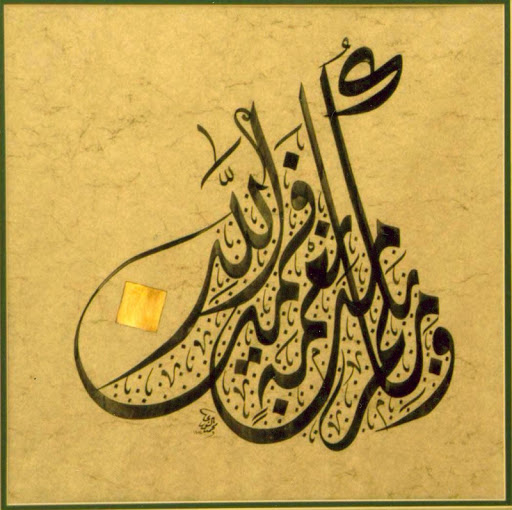 وما بكم من نعمة فمن الله